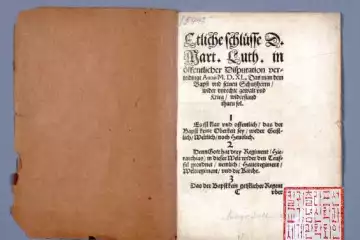 Etliche schlüsse D.
Mart. Luth. in
öffentlicher Disputation ver-
Anno M. D. XL. Das man dem
Bapst vnd seinen Schutzherrn
wider vnrechte gewalt vnd
Krieg / widerstand
thuen sol.
1
Es ist klar vnd offentlich / das der
Bapst keine Oberkeit sey / weder Geist-
lich / Weltlich / noch Heuslich.
2
Denn Gott hat drey Regiment / Hie-
in dieser Welt wider den Teuf-
fel geordnet / nemlich / Hausregiment /
Weltregiment / vnd die Kirche.
3
Das der Bapst kein geistlicher Regent
C vber